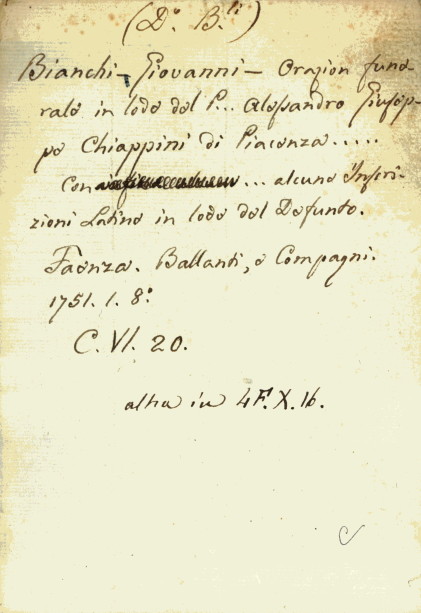 (D.º B.li)
Bianchi - Giovanni - Orazion fune-
rale in lode del P... Alessandro Giusep-
pe Chiappini di Piacenza.....
Con ... alcune Inscri-
zioni Latine in lode del Defunto.
Faenza. Ballanti, e Compagni.
1751. 1. 8.º
C. VI. 20.
altra in 4F. X. 16.